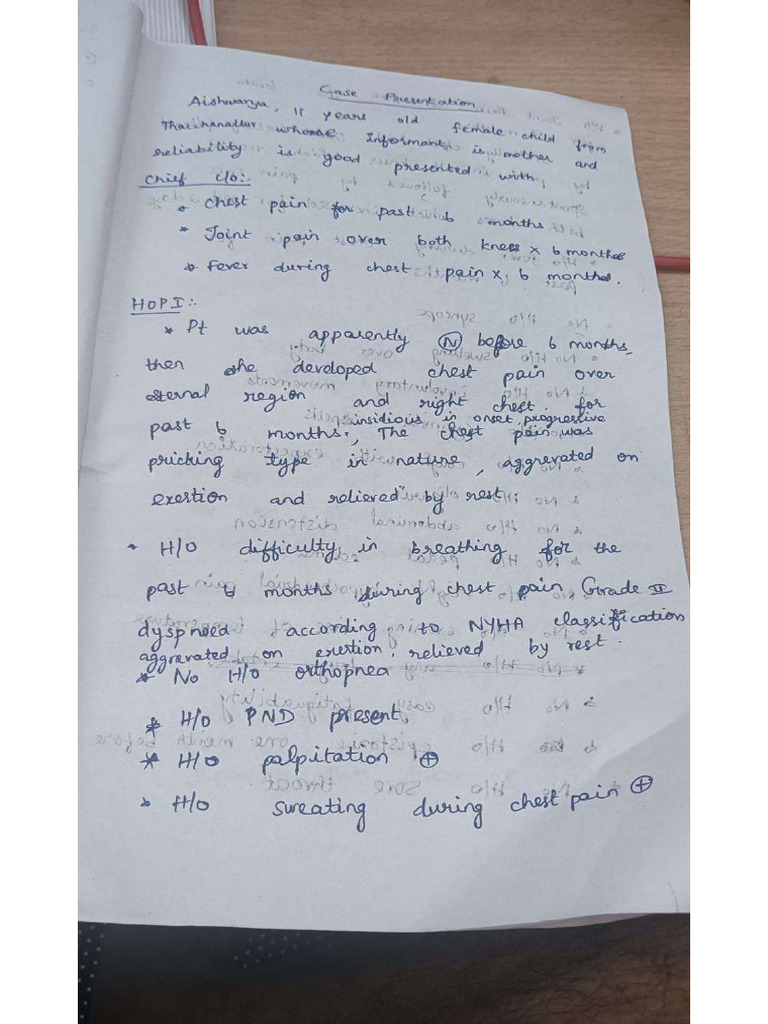 Case Presentation
Aishwarya, 11 years old female child from
Thacchanallur whose Informant is mother and
reliability is good presented with
Chief c/o:-
* Chest pain for past 6 months
* Joint pain over both knees x 6 months
* Fever during chest pain x 6 months.
HOPI:-
* Pt was apparently (N) before 6 months,
then she developed chest pain over
sternal region and right chest for
past 6 months., insidious in onset, progressive
The chest pain was
pricking type in nature, aggrevated on
exertion and relieved by rest
* H/o difficulty in breathing for the
past months during chest pain Grade II
dyspnoea according to NYHA classification
aggravated on exertion relieved by rest.
* No H/o orthopnea
* H/o PND present
* H/o palpitation ⊕
* H/o sweating during chest pain ⊕